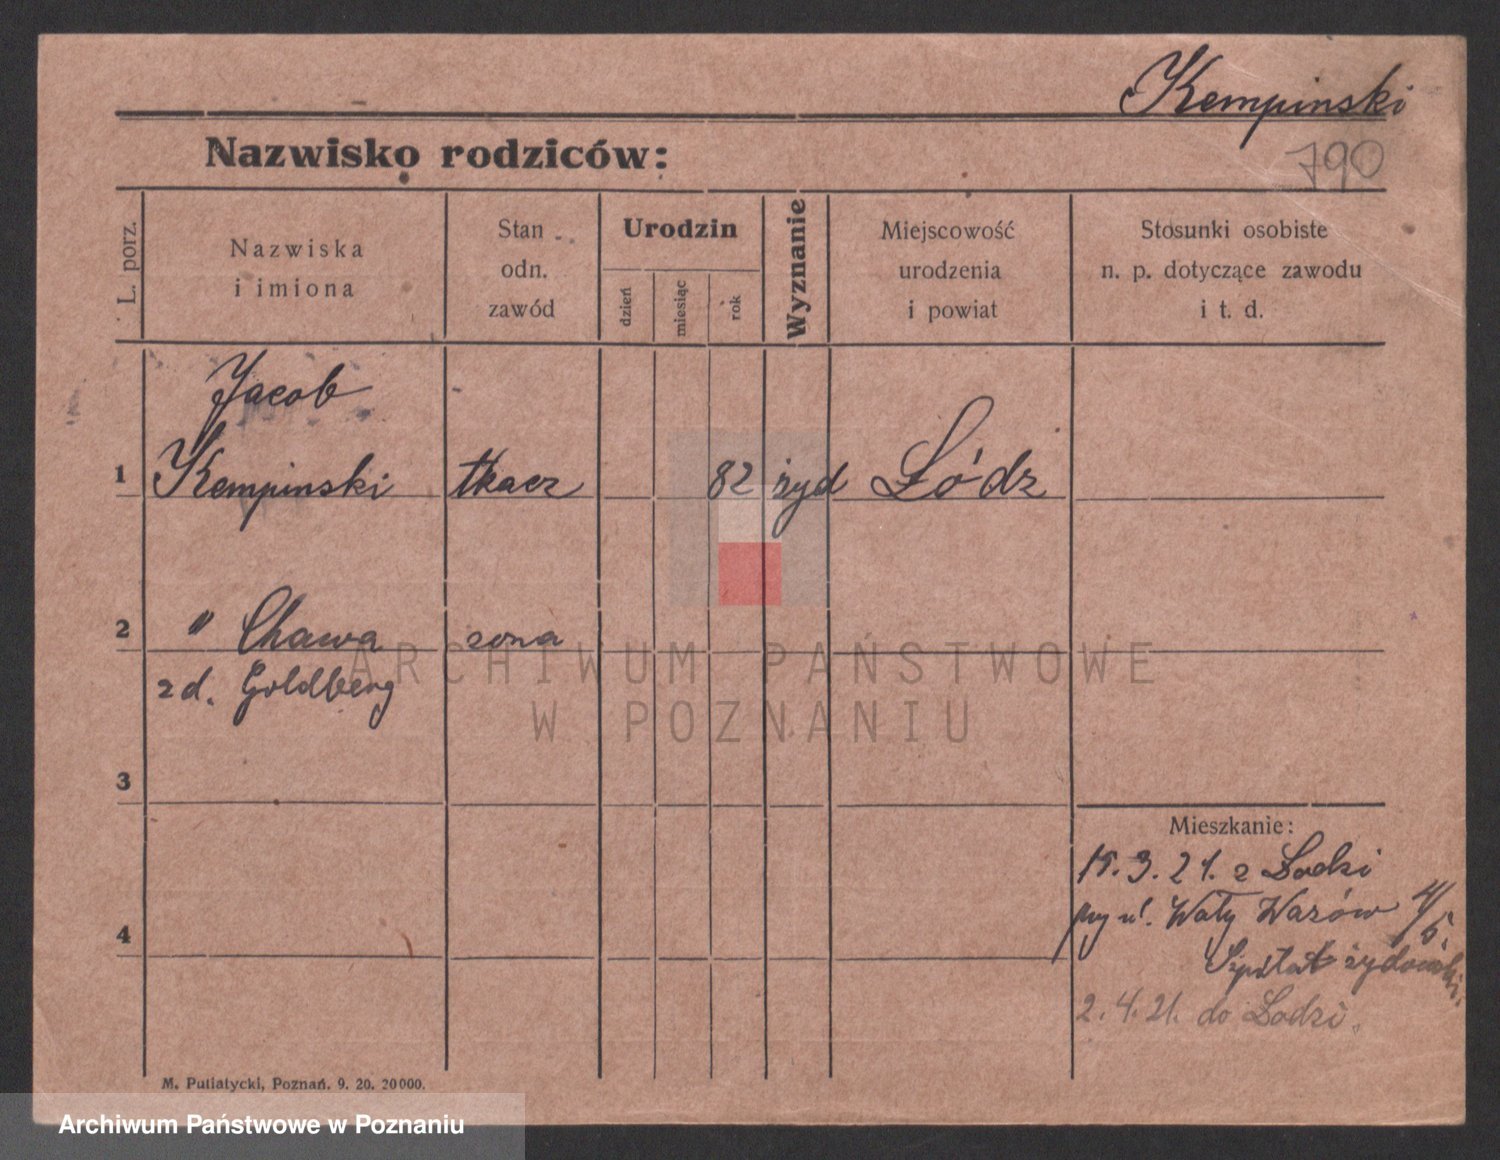 Kempinski
790
Nazwisko rodziców:
L. porz.
Nazwiska
i imiona
Stan
odn.
zawód
Urodzin
dzień
miesiąc
rok
Wyznanie
Miejscowość
urodzenia
i powiat
Stosunki osobiste
n. p. dotyczące zawodu
i t. d.
Jacob
1 Kempinski tkacz 82 żyd Łódz
2 " Chawa zona
zd. Goldberg
3
4
Mieszkanie:
15.3.21. z Lodzi
przy ul. Wały Wazów 4/5.
Szpital żydowski.
2.4.21. do Lodzi.
ARCHIWUM PAŃSTWOWE
W POZNANIU
M. Putiatycki, Poznań. 9. 20. 20000.
Archiwum Państwowe w Poznaniu